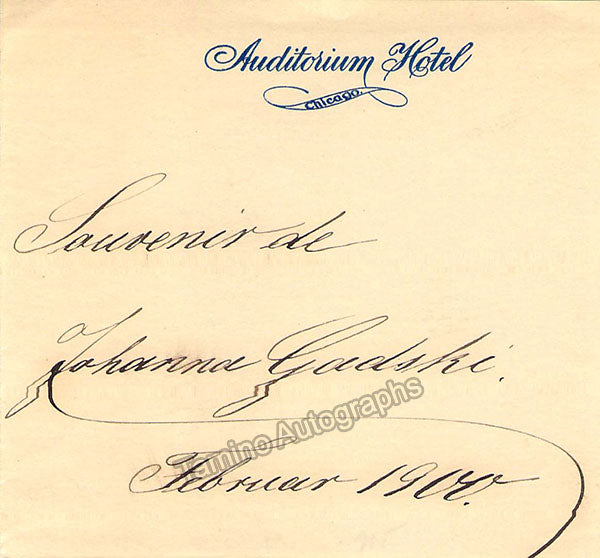 Auditorium Hotel
Chicago.
Souvenir de
Johanna Gadski.
Tamino Autographs
Februar 1900.